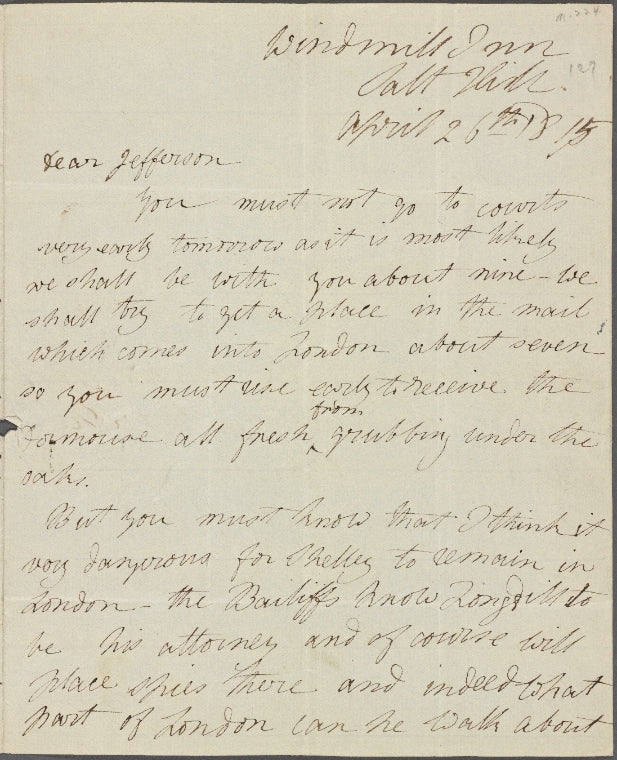 Windmill Inn
Salt Hill.
127
April 26th 1815
Dear Jefferson
You must not go to courts
very early tomorrow as it is most likely
we shall be with you about nine - we
shall try to get a place in the mail
which comes into London about seven
so you must rise early to receive the
from
Dormouse all fresh ‸ grubbing under the
oaks.
But you must know that I think it
very dangerous for Shelley to remain in
London - the Bailiffs know Longdill to
be his attorney and of course will
place spies there and indeed what
part of London can he walk about